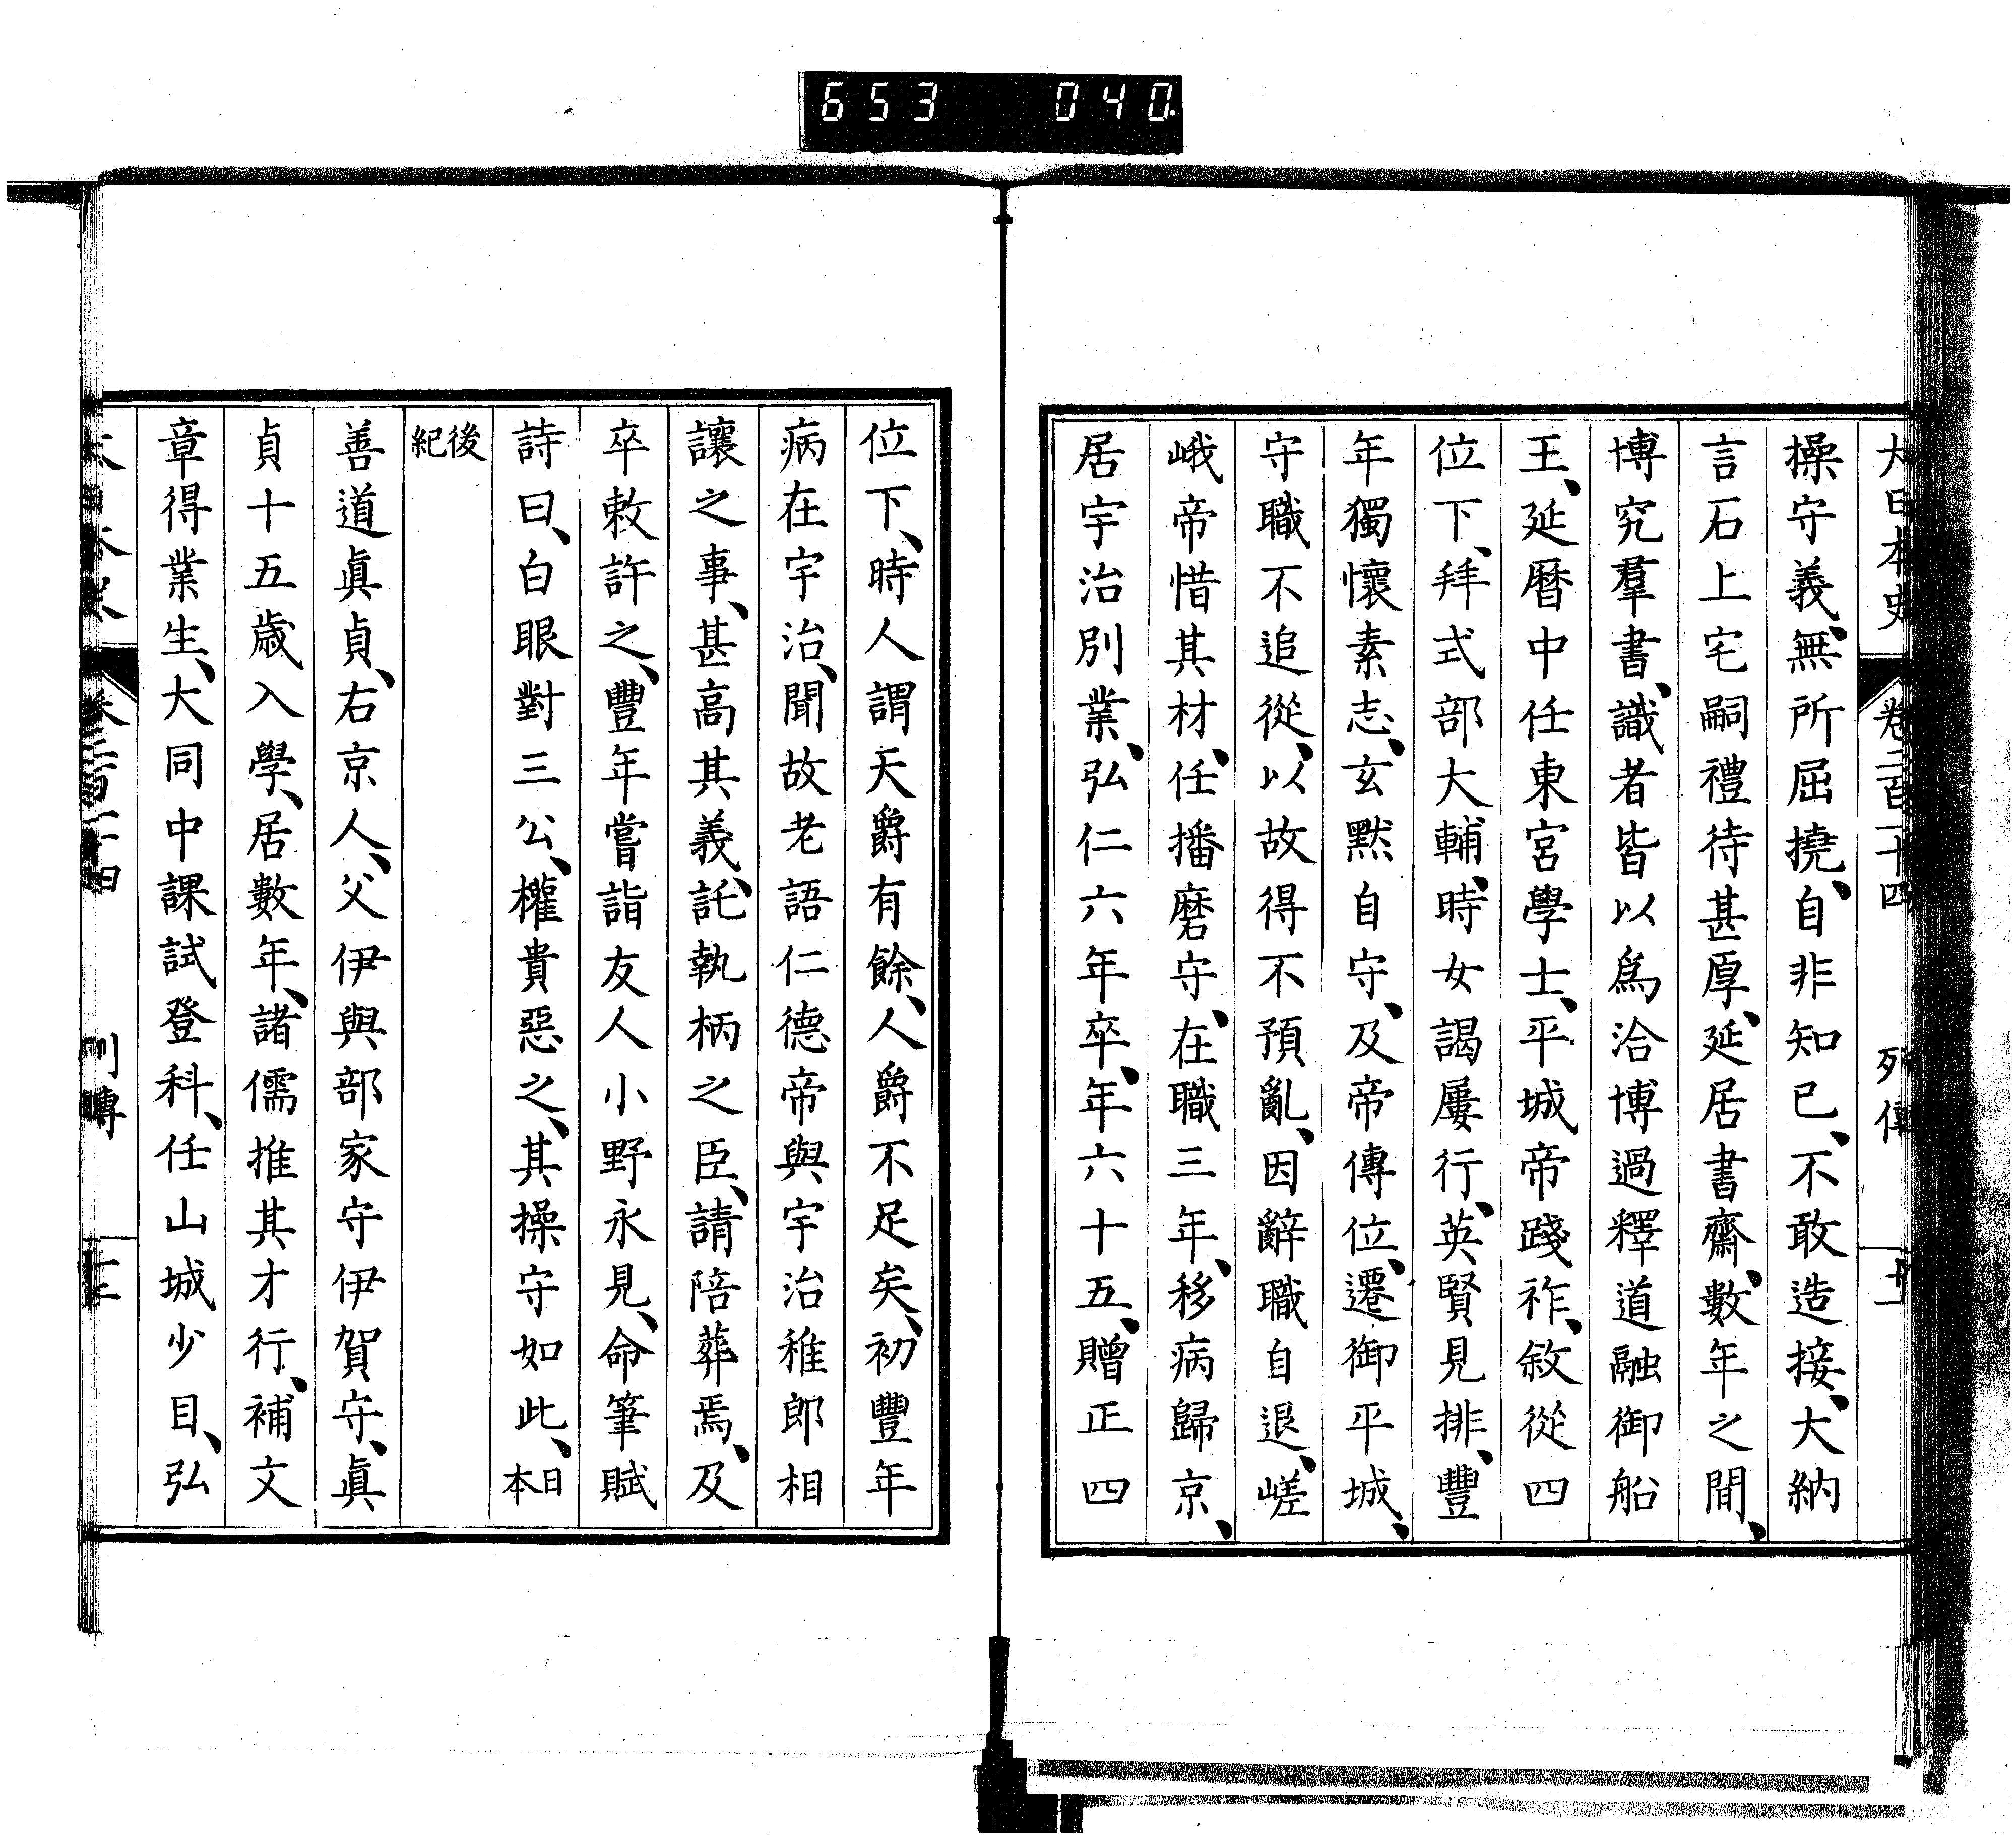 653 040
大日本史 卷二百十四 列傳 十一
操守義、無所屈撓、自非知已、不敢造接、大納
言石上宅嗣禮待甚厚、延居書齋、數年之間、
博究羣書、識者皆以爲洽博過釋道融御船
王、延曆中任東宮學士、平城帝踐祚、敘從四
位下、拜式部大輔、時女謁屢行、英賢見排、豐
年獨懷素志、玄默自守、及帝傳位、遷御平城、
守職不追從、以故得不預亂、因辭職自退、嵯
峨帝惜其材、任播磨守、在職三年、移病歸京、
居宇治別業、弘仁六年卒、年六十五、贈正四
位下、時人謂天爵有餘、人爵不足矣、初豐年
病在宇治、聞故老語仁德帝與宇治稚郎相
讓之事、甚高其義、託執柄之臣、請陪葬焉、及
卒敕許之、豐年嘗詣友人小野永見、命筆賦
詩曰、白眼對三公、權貴惡之、其操守如此、日本
後紀
善道眞貞、右京人、父伊與部家守伊賀守、眞
貞十五歲入學、居數年、諸儒推其才行、補文
章得業生、大同中課試登科、任山城少目、弘
列傳